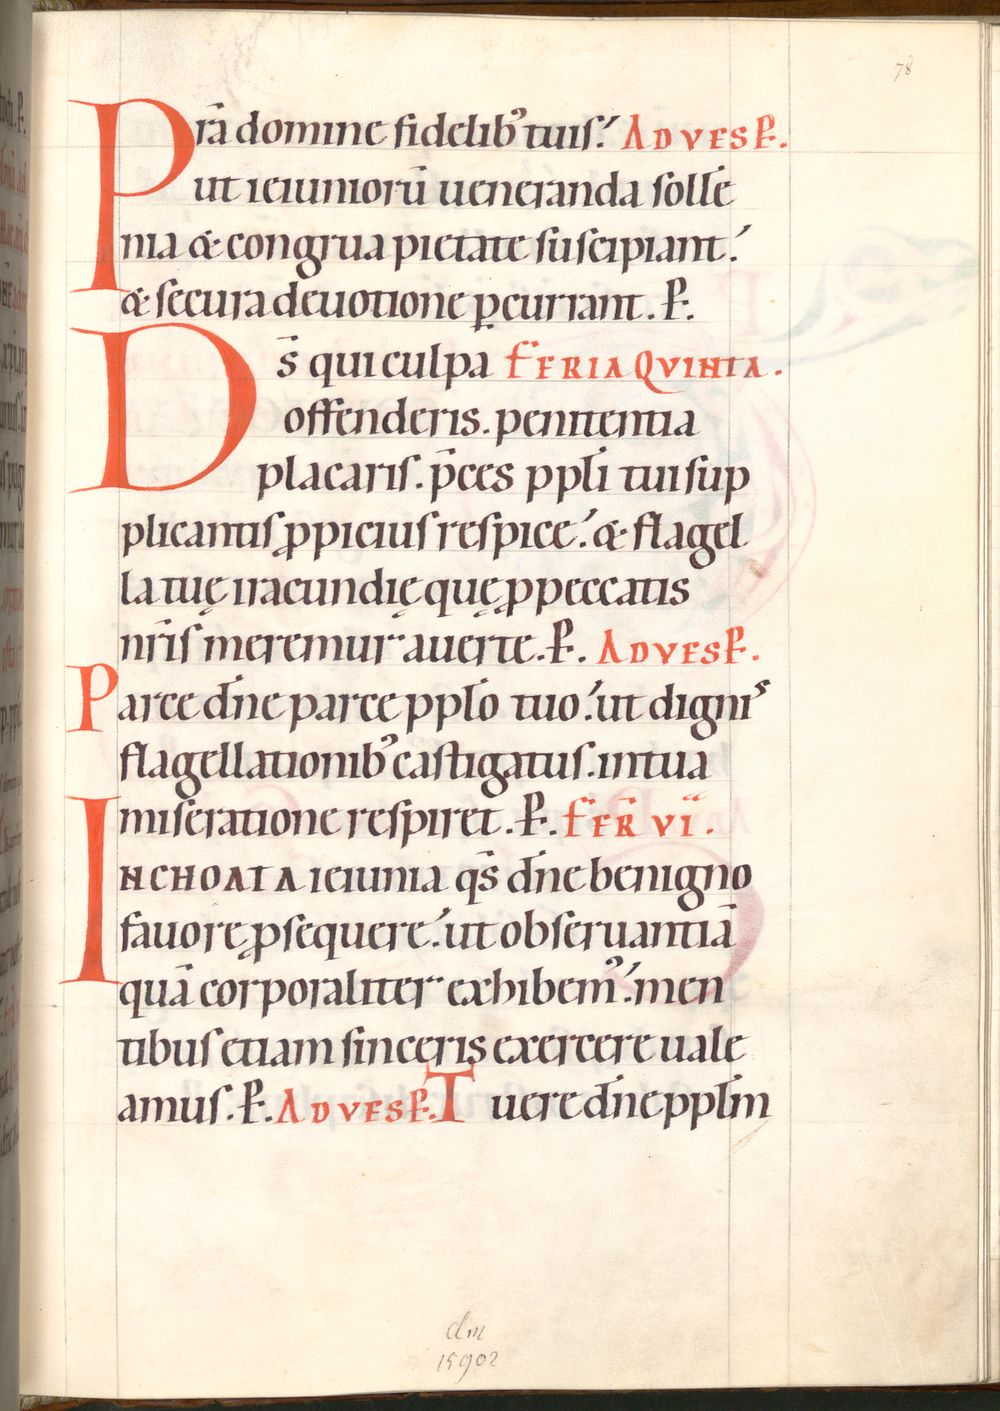 78
Prā domine fidelibꝰ tuis. AD VESꝑ.
ut ieiuniorū ueneranda solle͞
nia & congrua pietate suscipiant.
& secura deuotione ꝑcurrant. ꝑ.
Ds̄ qui culpa FERIA QVINTA.
offenderis. penitentia
placaris. p̄ces ppl̄i tui sup
plicantis ꝓpicius respice. & flagel
la tuę iracundię quę ꝓ peccatis
nr̄is meremur auerte. ꝑ. AD VESꝑ.
Parce dn̄e parce ppl̄o tuo. ut dignis
flagellationibꝰ castigatus. in tua
miseratione respiret. ꝑ. FER̄ VI.
INCHOATA ieiunia qs̄ dn̄e benigno
fauore ꝓsequere. ut obseruantiā
quā corporaliter exhibemꝰ. men
tibus etiam sinceris exercere uale
amus. ꝑ. AD VESꝑ. Tuere dn̄e ppl̄m
dm
15902